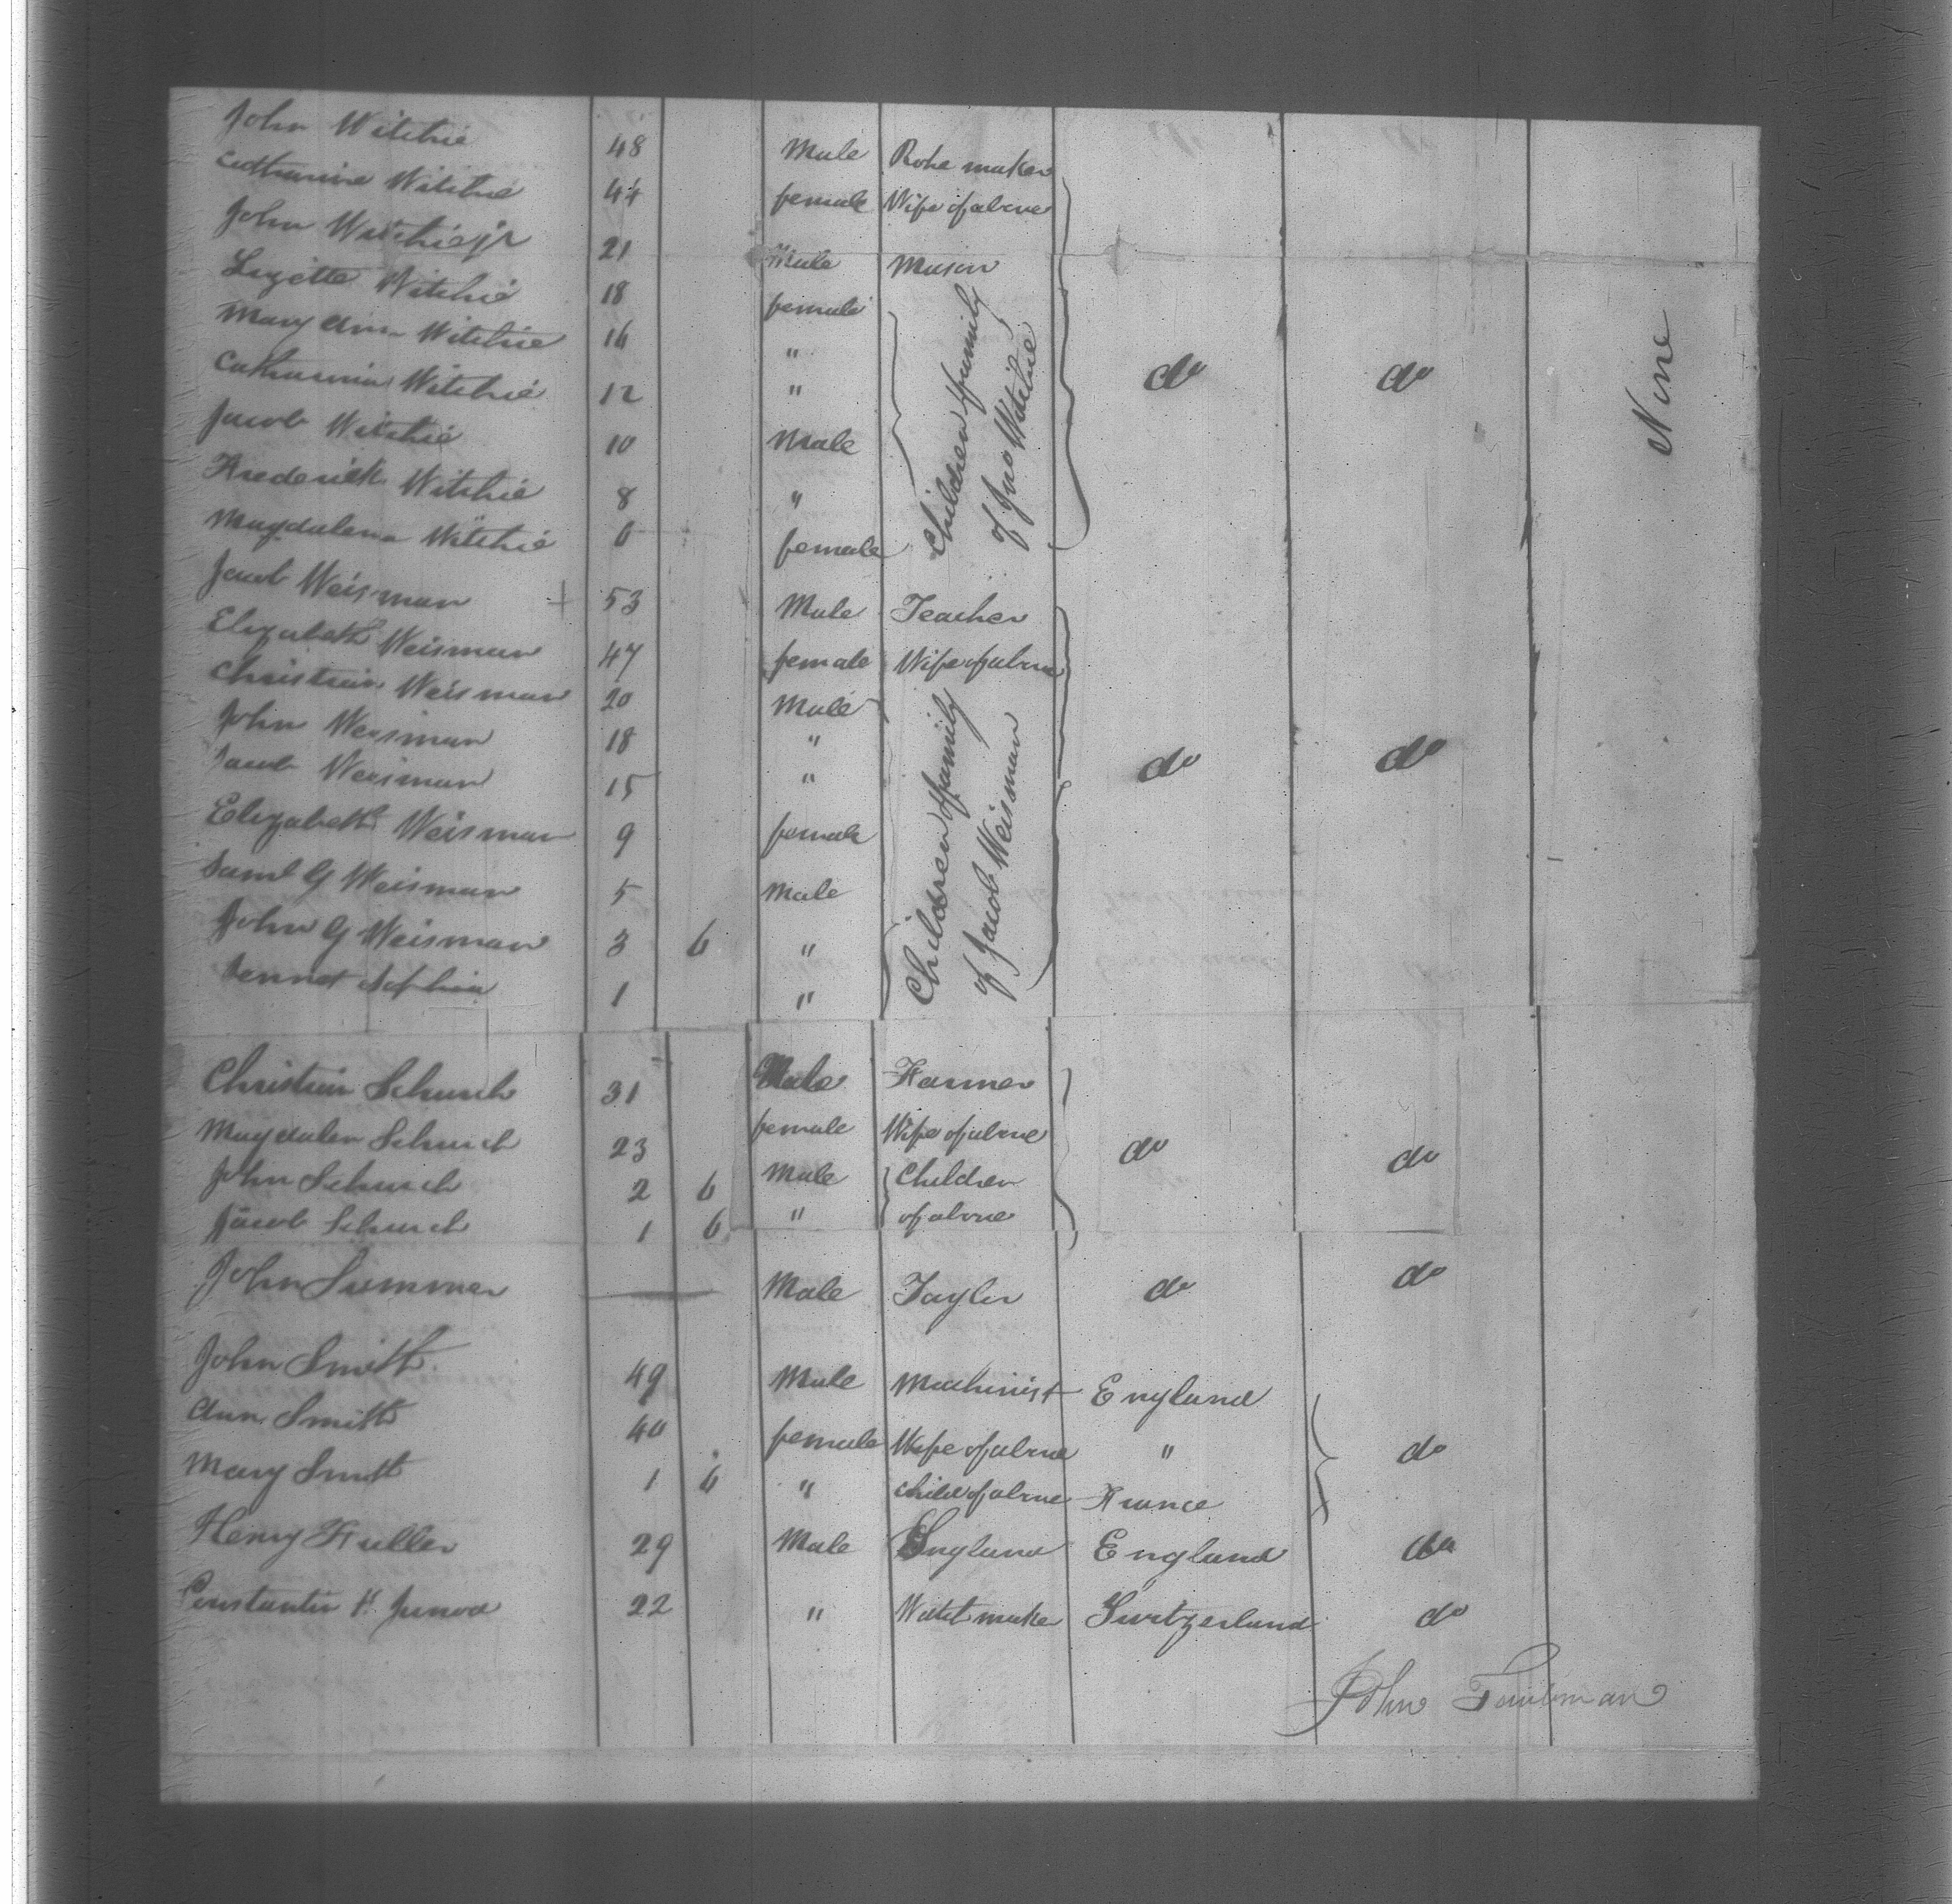 John Witchie 48 Male Rope maker
Catharine Witchie 44 female Wife of above
John Witchie jr 21 Male Mason
Lizette Witchie 18 female
Mary Ann Witchie 16 "
Catharina Witchie 12 "
Jacob Witchie 10 Male
Frederick Witchie 8 "
Magdalena Witchie 6 female
Children & family
of Jno Witchie
do do
Nine
Jacob Weisman + 53 Male Teacher
Elizabeth Weisman 47 female Wife of above
Christian Weisman 20 Male
John Weisman 18 "
Jacob Weisman 15 "
Elizabeth Weisman 9 female
Saml G Weisman 5 Male
John G Weisman 3 6 "
Sophia 1 "
Children & family
of Jacob Weisman
do do
Christian Schurch 31 Male Farmer
Magdalen Schurch 23 female Wife of above
John Schurch 2 6 Male Children
Jacob Schurch 1 6 " of above
do do
John Summer Male Taylor do do
John Smith 49 Male Machinist England
Ann Smith 40 female Wife of above " do
Mary Smith 1 6 " child of above France
Henry Fuller 29 Male England England do
Constantin H Junod 22 " Watchmaker Switzerland do
John